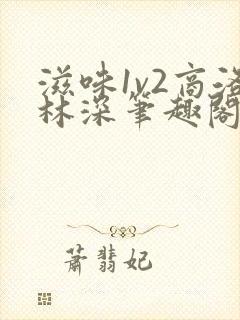 滋味1v2高洛
林深笔趣阁
萧翡妃